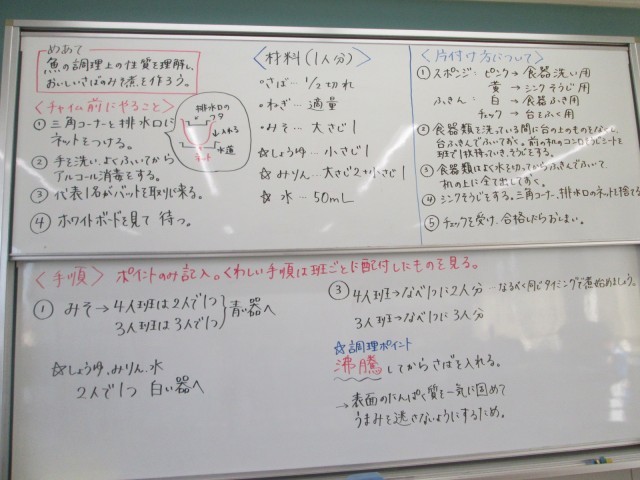 めあて
魚の調理上の性質を理解し、
おいしいさばのみそ煮を作ろう。
<チャイム前にやること>
① 三角コーナーと排水口に
ネットをつける。
② 手を洗い、よくふいてから
アルコール消毒をする。
③ 代表1名がバットを取りに来る。
④ ホワイトボードを見て 待つ。
排水口の
フタ
入れる
水道
ネット
<材料(1人分)>
・さば… 1/2切れ
・ねぎ… 適量
・みそ… 大さじ1
☆しょうゆ… 小さじ1
☆みりん… 大さじ2+小さじ1
☆水… 50mL
<片付け方について>
① スポンジ: ピンク→食器洗い用
黄→シンクそうじ用
ふきん: 白→食器ふき用
チェック→台をふく用
② 食器類を洗っている間に台の上のものをなくし、
台ふきんでふいておく。前の机のコンロ
班で1枚持っていき、そうじをする。
③ 食器類はよく水を切ってからふきんでふいて、
机の上に全て出しておく。
④ シンクそうじをする。三角コーナー、排水口のネットを捨てる
⑤ チェックを受け、合格したらおしまい。
<手順> ポイントのみ記入。くわしい手順は班ごとに配付したものを見る。
① みそ→4人班は2人で1つ
3人班は3人で1つ}青い器へ
☆しょうゆ、みりん、水
2人で1つ 白い器へ
③ 4人班→なべ1つに2人分 ―なるべく同じタイミングで煮始めましょう。
3人班→なべ1つに3人分
☆調理ポイント
沸騰してからさばを入れる。
→表面のたんぱく質を一気に固めて
うまみを逃さないようにするため。